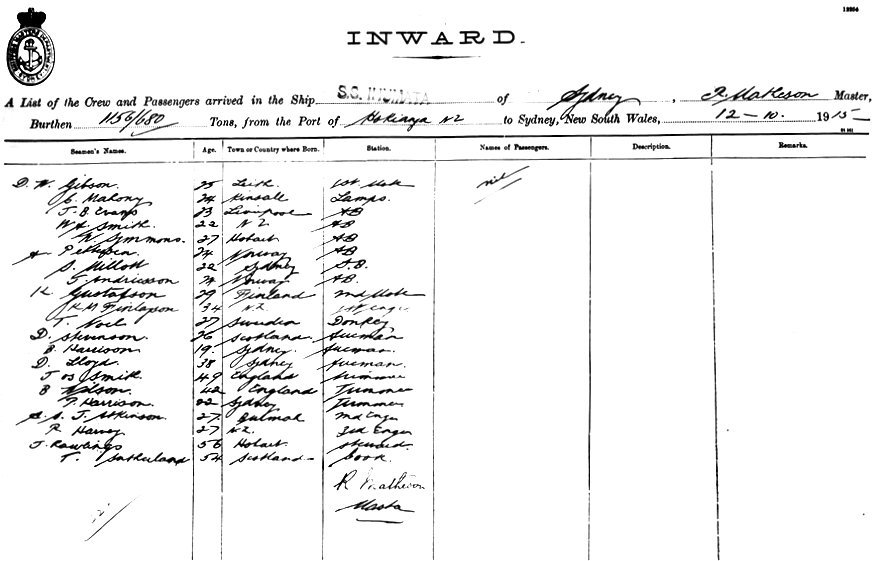 12204
INWARD.
A List of the Crew and Passengers arrived in the Ship S.S. of Sydney, R. Matheson Master,
Burthen 1156/680 Tons, from the Port of Hokianga NZ to Sydney, New South Wales, 12–10. 1915
Seamen's Names. Age. Town or Country where Born. Station. Names of Passengers. Description. Remarks.
D. W. Gibson. 25 Leith 1st Mate nil
C. Mahony 24 Kinsale Lamps.
J. B Evans 23 Liverpool AB
W H Smith. 22 NZ AB
W. Symmons. 27 Hobart AB
A Petersen. 24 Norway AB
S. Millott 22 Sydney
Andriesson 24 Norway AB.
K Gustafson 29 Finland 2nd Mate
K M Finlayson 34 NZ. 1st Engr
T. Noel 27 Sweden Donkey
D. Stevenson 26 Scotland Fireman
B. Harrison 19. Sydney. Fireman.
D. Lloyd. 38 Sydney Fireman.
Jos Smith 49 England Trimmer
B Wilson. 42 England Trimmer
F. Harrison 22 Sydney Trimmer
S. J. Atkinson. 27. Balmain 2nd Engr
R Harvey 27 NZ. 3rd Engr
J. Rawlings 56 Hobart Steward
T. Sutherland 54 Scotland Cook
R Matheson
Master